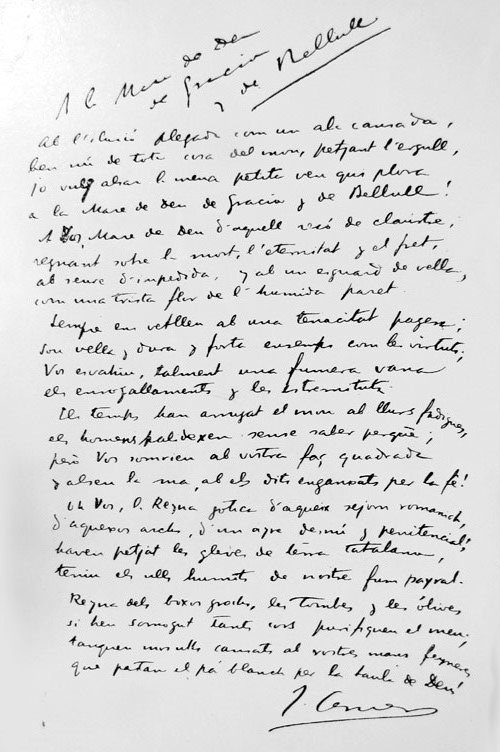 A la Mare de Deu
de Gracia
y de Bellull
Ab l'ilusió plegada com un ala cansada,
ben nú de tota cosa del mon, petjant l'ergull,
jo vull alsar la mena petita veu que plora
a la Mare de Deu de Gracia y de Bellull!
A Vos, Mare de Deu d'aquell racó de claustre,
regnant sobre la mort, l'eternitat y el fret,
ab seure d'impedida, y ab un esguard de vella,
com una trista flor de l'humida paret.
Sempre ens vetllen ab una tenacitat pagesa;
sou vella y dura y forta ensemps com les virtuts;
Vos esvahiu, talment una fumera vana
els enrogallaments y les estretituts.
Els temps han arrugat el mon ab llurs fadigues,
els homens palidexen sense saber perquè;
però Vos somrieu ab vostra faç quadrada
y alseu la ma, ab els dits enganxats per la fe!
Oh Vos, la Reyna gotica d'aqueix sejorn romanich,
d'aquexos archs, d'un agre desnú y penitencial!
haveu petjat les gleves de terra catalana,
teniu els ulls humits de nostre fum payral.
Reyna dels boxos grochs, les tombes y les ólives
si heu somogut tants cors purifiqueu el meu;
tanquen mos ulls cansats ab vostres mans feyneres
que pastan el pá blanch per la taula de Deu!
J. Carner